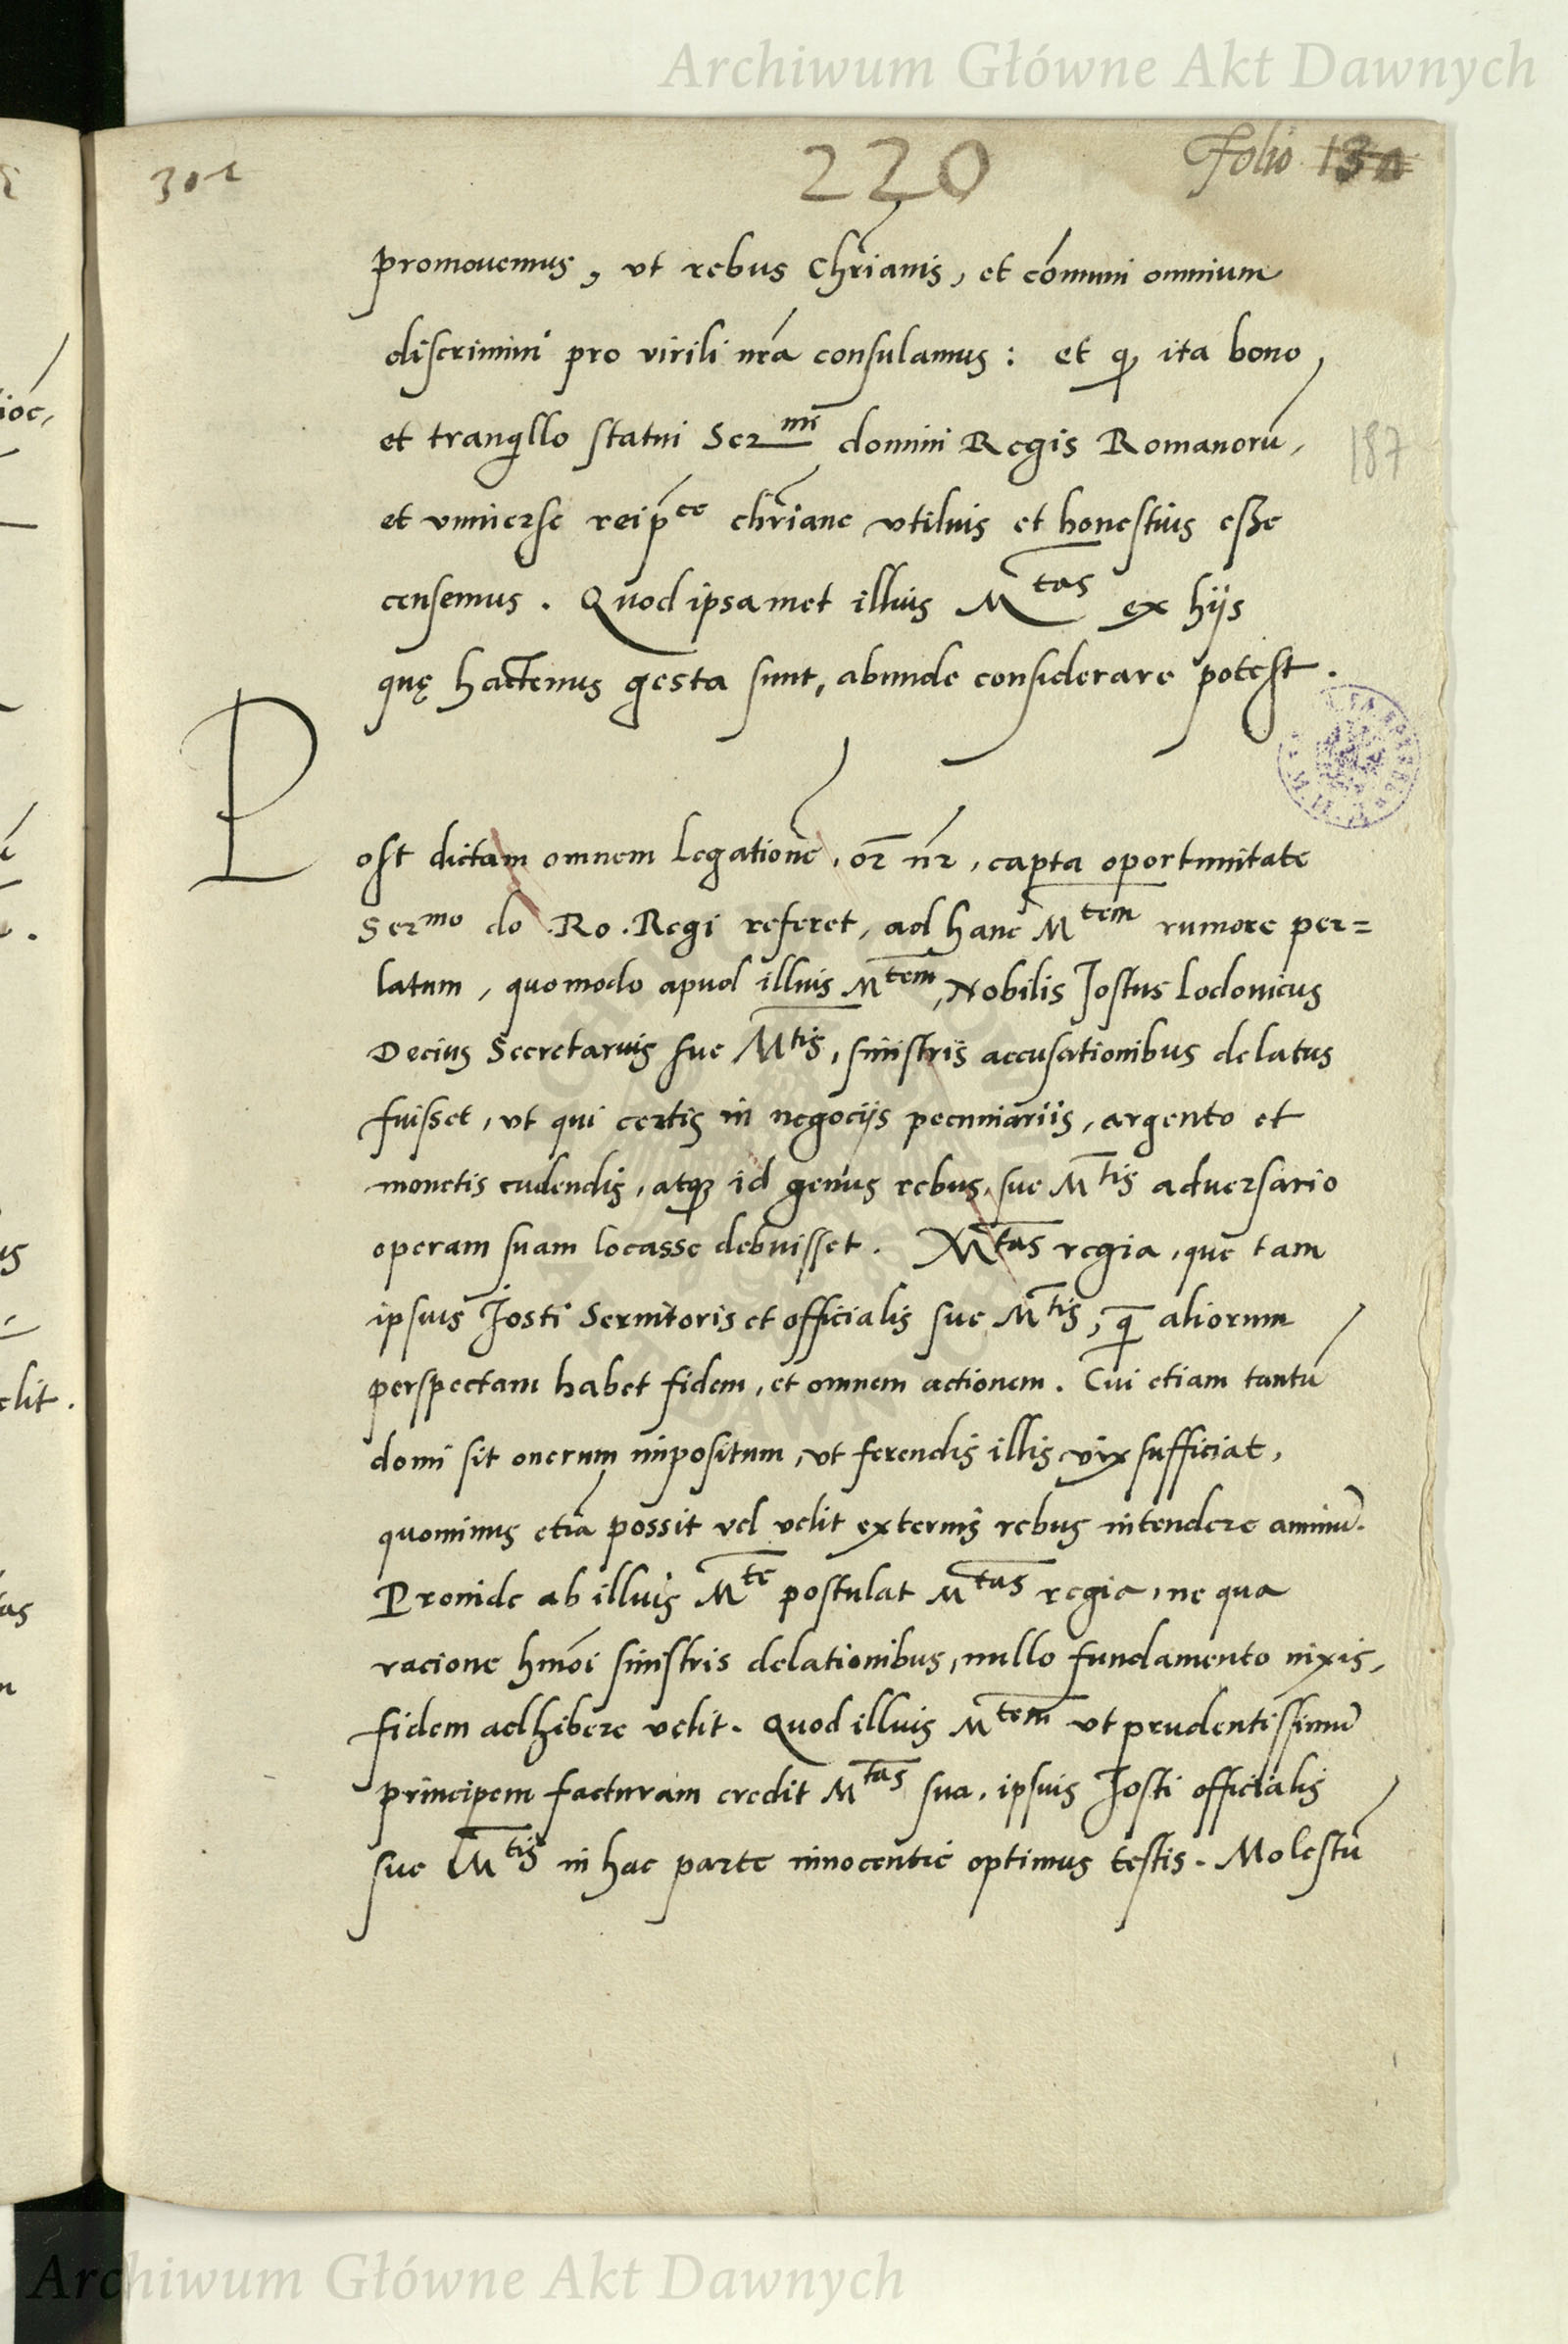 Archiwum Główne Akt Dawnych
301
220
Folio
promouemus, vt rebus Chrianis, et cōmuni omnium
discrimini pro virili nrā consulamus: et q ita bono
et tranqllo statui Ser^mi domini Regis Romanorū,
et vniuerse reip^ce chriane vtilius et honestius esse
censemus. Quod ipsamet illius M^tas ex hijs
quę hactenus gesta sunt, abunde considerare potest.
187
Post dictam omnem legationē, or nr, capta oportunitate
Ser^mo do. Ro. Regi referet, ad hanc M^tem rumore per=
latum, quomodo apud illius M^tem, Nobilis Jostus Lodouicus
Decius Secretarius sue M^tis, sinistris accusationibus delatus
fuisset, vt qui certis in negocijs pecuniarijs, argento et
monetis cudendis, atqꝫ id genus rebus, sue M^tis aduersario
operam suam locasse debuisset. M^tas regia, que tam
ipsius Josti Seruitoris et officialis sue M^tis, q̄ aliorum
perspectam habet fidem, et omnem actionem. Cui etiam tantū
domi sit onerum impositum, vt ferendis illis vix sufficiat,
quominus etiā possit vel velit externis rebus intendere animū.
Proinde ab illius M^te postulat M^tas regia, ne qua
racione hmōi sinistris delationibus, nullo fundamento nixis,
fidem adhibere velit. Quod illius M^tem vt prudentissimū
principem facturam credit M^tas sua, ipsius Josti officialis
sue M^tis in hac parte innocentie optimus testis. Molestū
Archiwum Główne Akt Dawnych